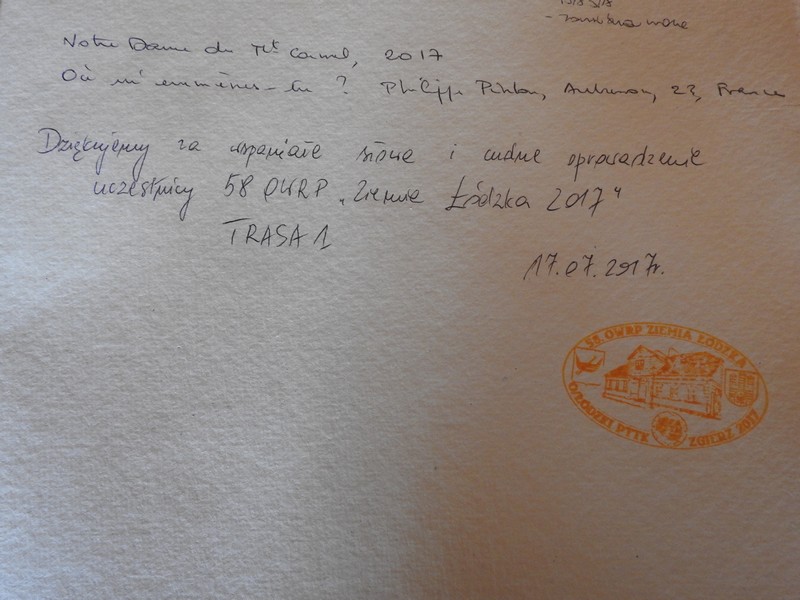 Notre Dame du Mt Carmel, 2017
Où m'emmènes-tu ? Philippe, Aubusson, 23, France
Dziękujemy za wspaniałe słowa i cudne oprowadzenie
uczestnicy 58 OWRP „Ziemia Łódzka 2017"
TRASA 1
17.07.2017r.
58. OWRP ZIEMIA ŁÓDZKA
O/ŁÓDZKI PTTK ZGIERZ 2017